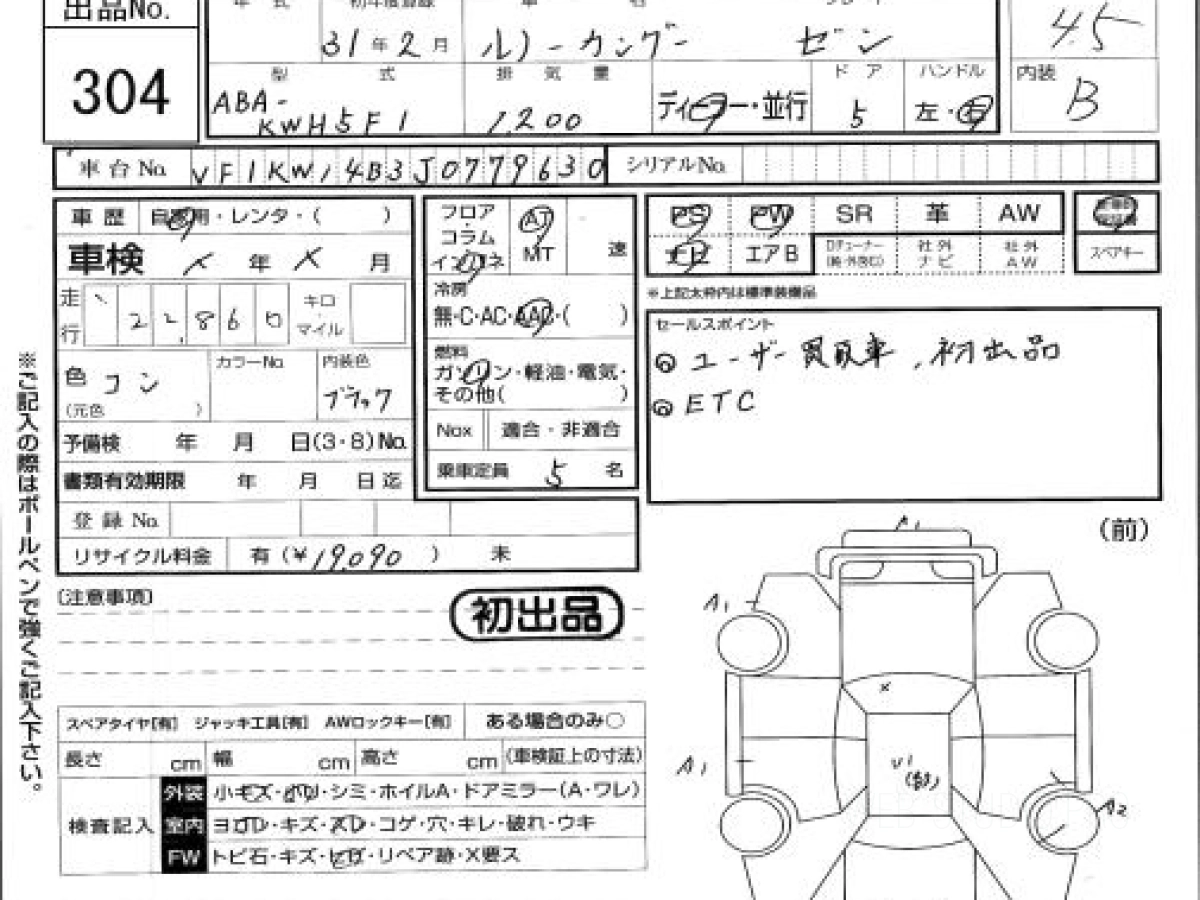 出品No.
304
31年2月 ルノーカングー ゼン
型式 排気量 ドア ハンドル
ABA-KWH5F1 1,200 ディーラー・並行 5 左・右
4.5
内装
B
車台No. VF1KW14B3J0779630 シリアルNo.
車歴 自家用・レンタ・( )
車検 年 月
走行 22,860 キロ・マイル
色 コン
(元色 )
カラーNo.
内装色 ブラック
予備検 年 月 日(3・8)No.
書類有効期限 年 月 日迄
登録No.
リサイクル料金 有(¥19,090 ) 未
フロア・コラム・インパネ AT MT 速
冷房
無・C・AC・AAC・( )
燃料
ガソリン・軽油・電気・
その他( )
Nox 適合・非適合
乗車定員 5 名
PS PW SR 革 AW
エアB 社外ナビ 社外AW
スペアキー
※上記太枠内は標準装備品
セールスポイント
◎ユーザー買取車、初出品
◎ETC
※ご記入の際はボールペンで強くご記入下さい。
(注意事項)
初出品
スペアタイヤ[有] ジャッキ工具[有] AWロックキー[有] ある場合のみ○
長さ cm 幅 cm 高さ cm (車検証上の寸法)
検査記入
外装 小キズ・凹・シミ・ホイルA・ドアミラー(A・ワレ)
室内 ヨゴレ・キズ・スレ・コゲ・穴・キレ・破れ・ウキ
FW トビ石・キズ・ヒビ・リペア跡・X要ス
(前)
A1
A1
X
A1
U1
A2